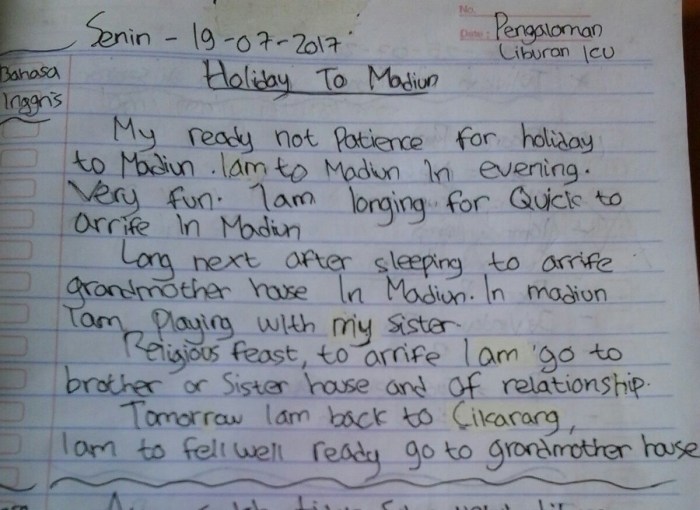 No.
Date:
Senin - 19-07-2017
Pengalaman
Liburan ICU
Bahasa
Inggris
Holiday To Madiun
My ready not Patience for holiday
to Madiun. Iam to Madiun In evening.
Very fun. Iam longing for Quick to
arrife In Madiun
Long next after sleeping to arrife
grandmother house In Madiun. In madiun
Iam Playing with my sister.
Religious feast, to arrife I am go to
brother or Sister house and Of relationship.
Tomorrow Iam back to Cikarang,
Iam to fell well ready go to grandmother house